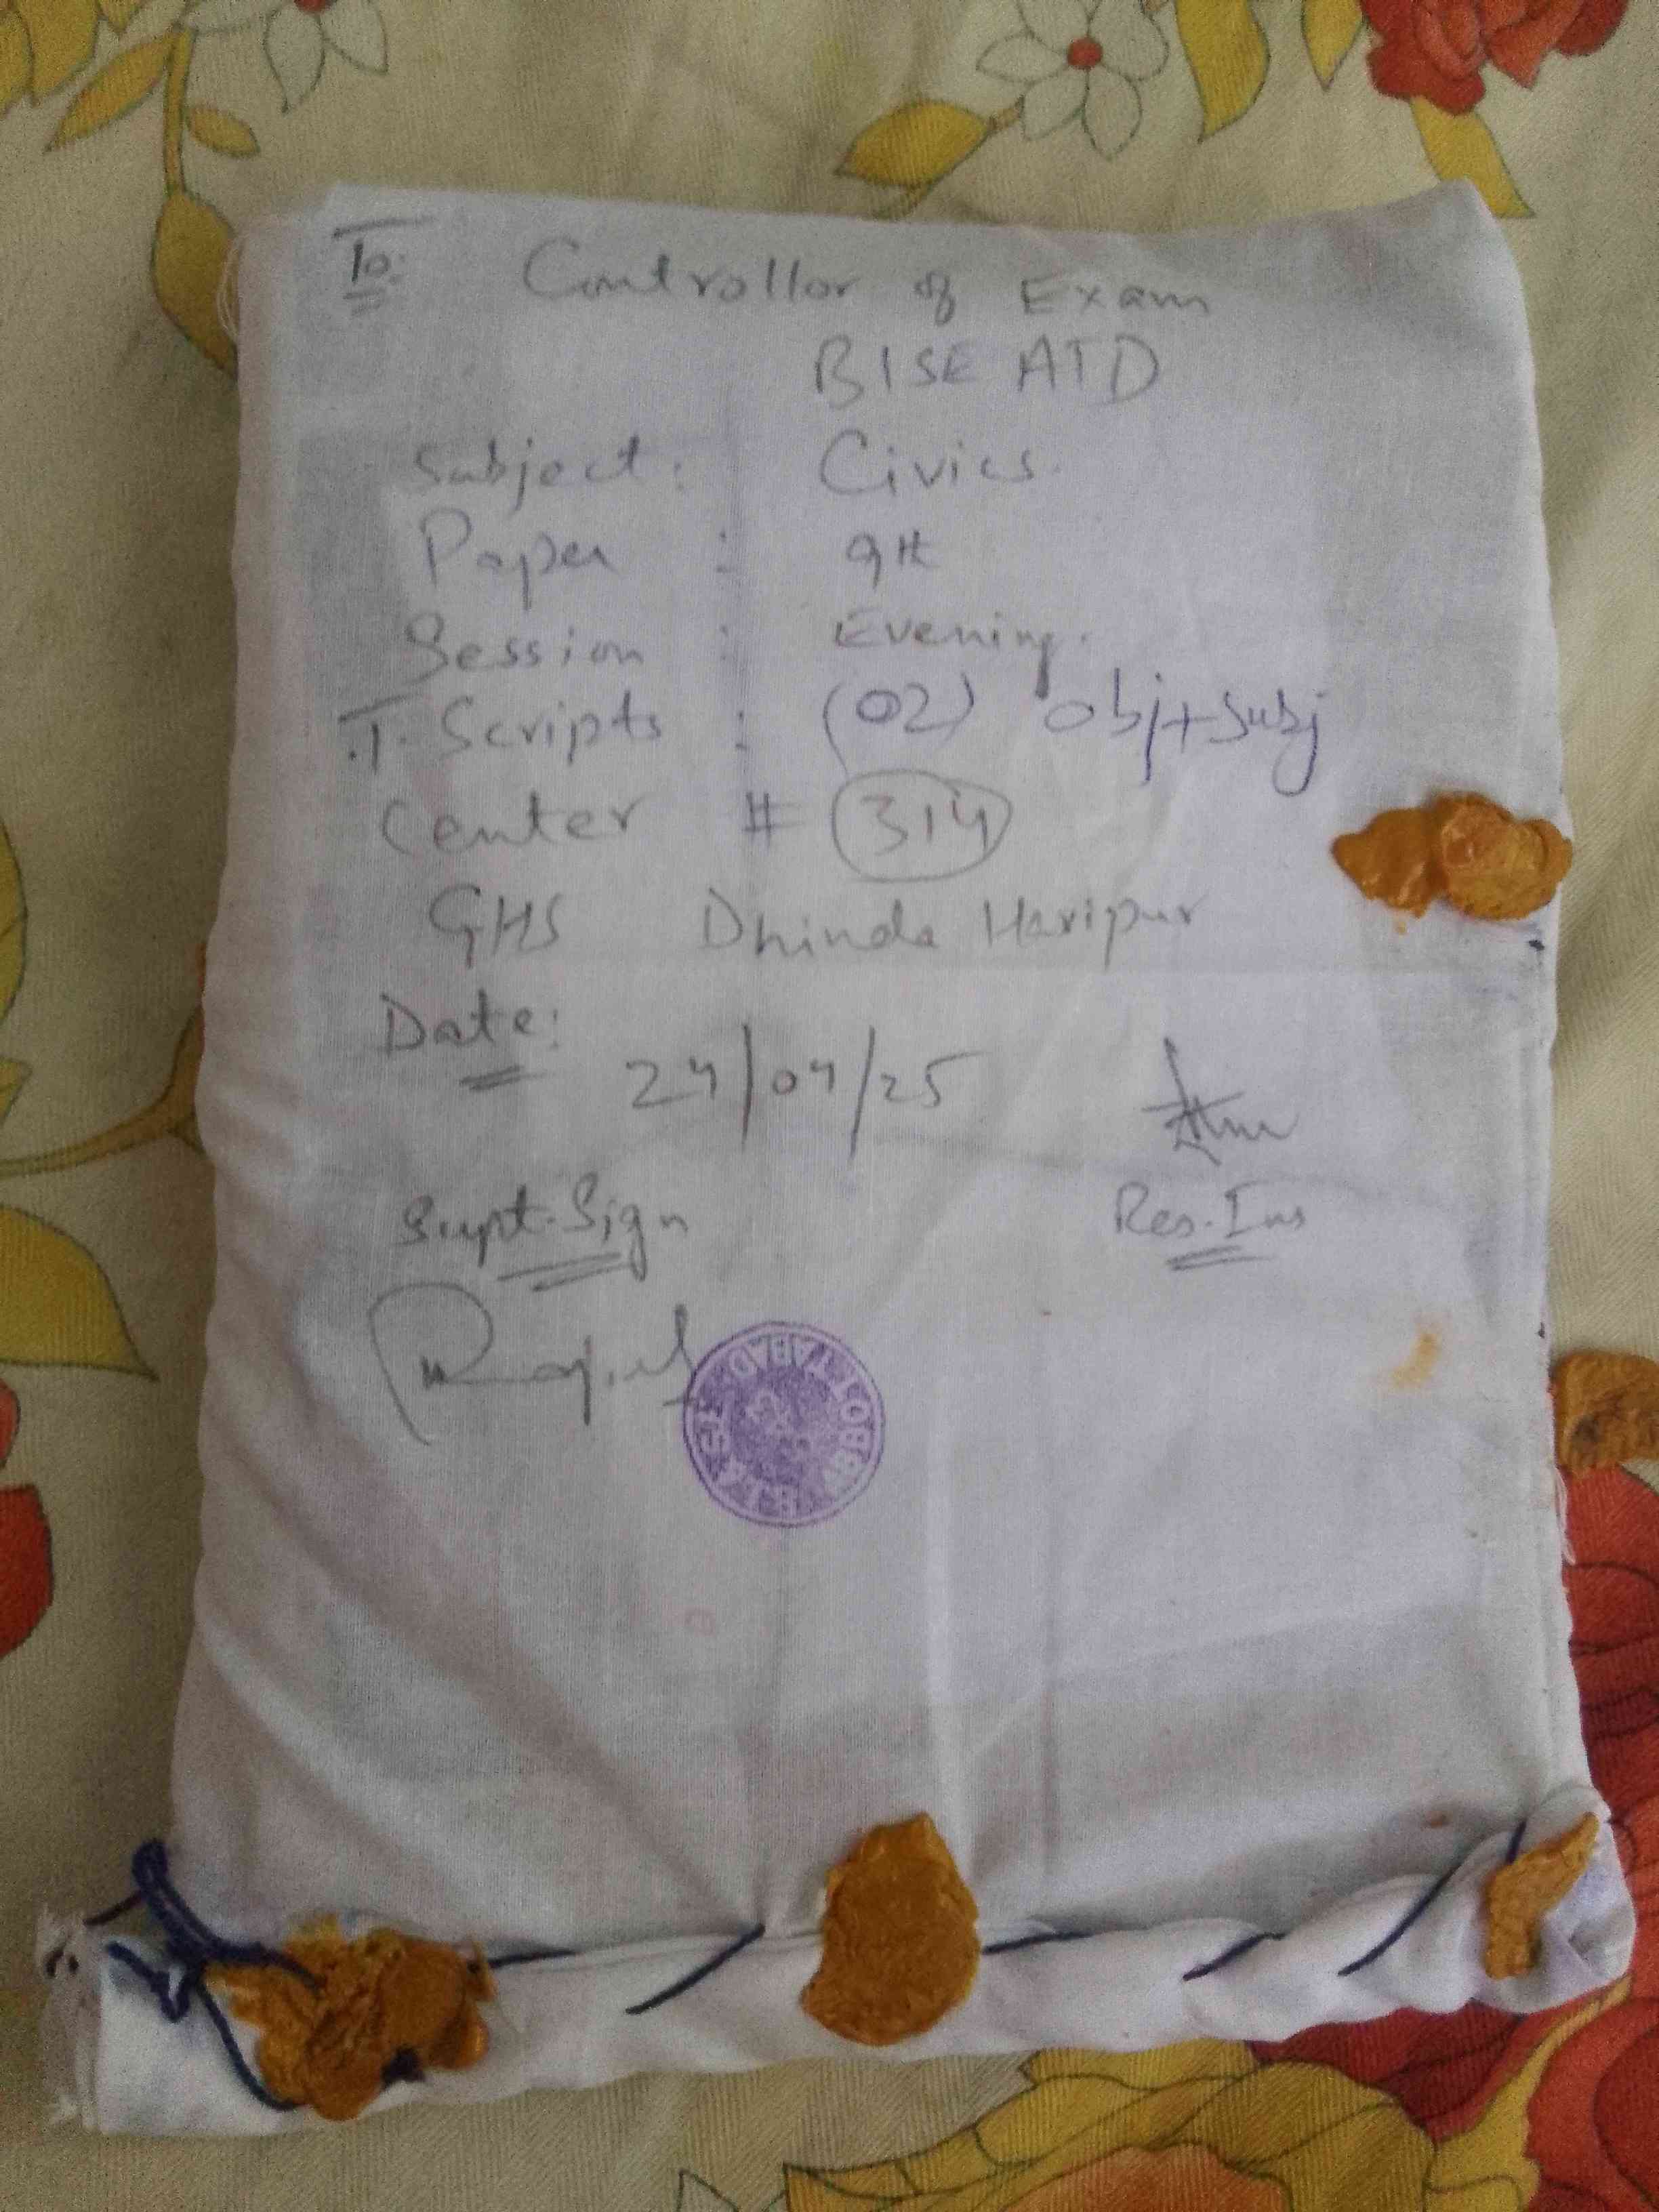 To: Controllor of Exam
BISE ATD
Subject: Civics.
Paper : 9th
Session : Evening.
T. Scripts : (02) obj+subj
Center # 314
GHS Dhinda Haripur
Date:
24/04/25
Supt. Sign Res. Ins
ABBOTTABAD